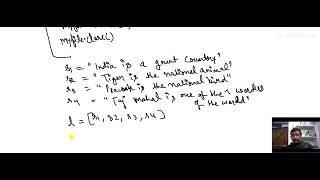 myfile.close()
s1 = "India is a great Country"
s2 = "Tiger is the national animal"
s3 = "Peacock is the national bird"
s4 = "Taj mahal is one of the 7 wonders
of the world"
l = [s1, s2, s3, s4]